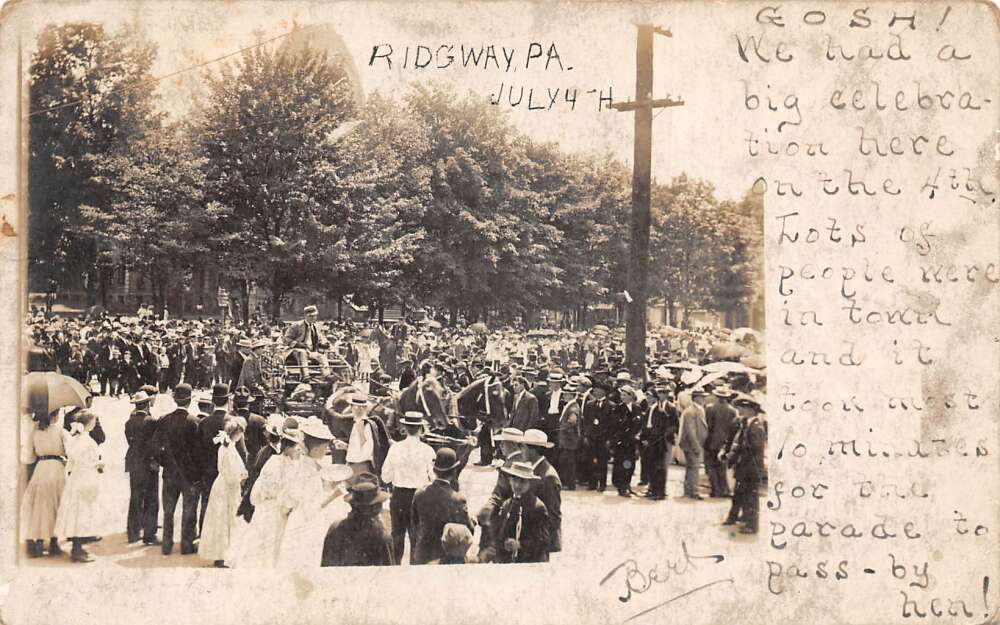 RIDGWAY, PA.
JULY 4TH
GOSH!
We had a
big celebra-
tion here
on the 4th.
Lots of
people were
in town
and it
took most
10 minutes
for the
parade to
pass-by
hen!
Bert